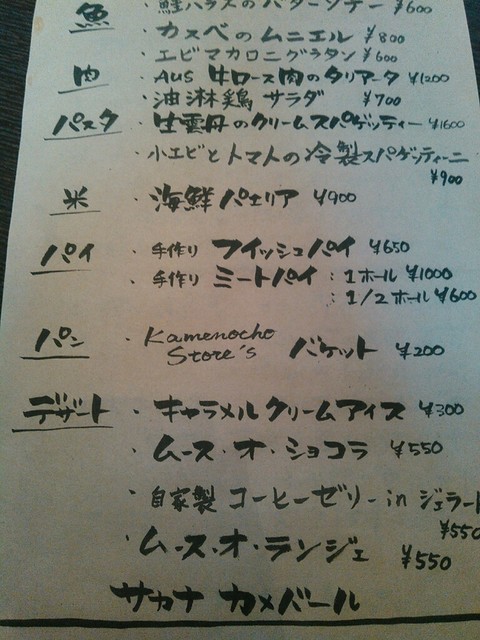 魚
・鮭ハラスのバターソテー ¥600
・カスベのムニエル ¥800
・エビマカロニグラタン ¥600
肉 ・AUS 牛ロース肉のタリアータ ¥1200
・油淋鶏 サラダ ¥700
パスタ ・生雲丹のクリームスパゲッティー ¥1600
・小エビとトマトの冷製スパゲッティーニ
¥900
米 ・海鮮パエリア ¥900
パイ ・手作り フィッシュパイ ¥650
・手作り ミートパイ : 1ホール ¥1000
: 1/2ホール ¥600
パン ・Kamenocho Store's バケット ¥200
デザート ・キャラメルクリームアイス ¥300
・ムース・オ・ショコラ ¥550
・自家製 コーヒーゼリー in ジェラート
¥550
・ムース・オ・ランジェ ¥550
サカナ カメバール